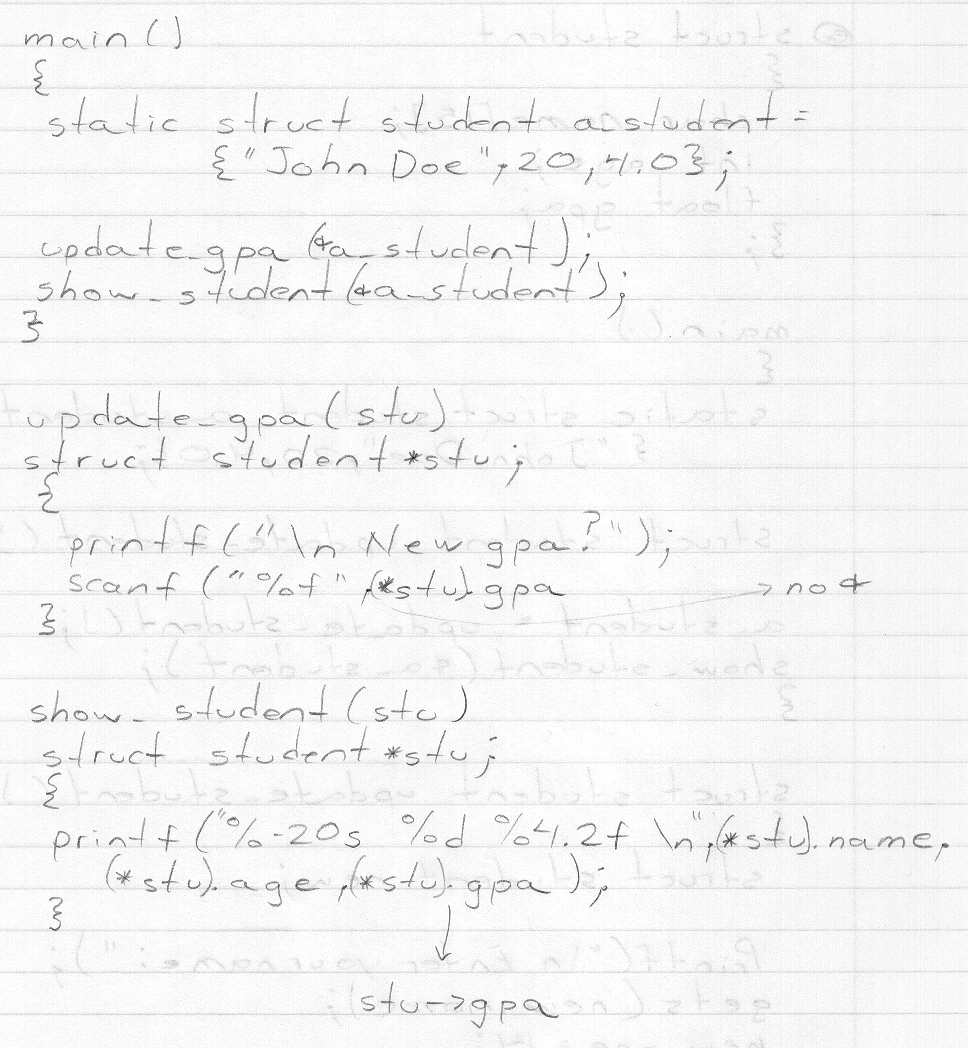 main()
{
static struct student a_student =
{"John Doe", 20, 4.0};
update_gpa (&a_student);
show_student (&a_student);
}
update_gpa (stu)
struct student *stu;
{
printf ("\n New gpa?");
scanf ("%f", (*stu).gpa → no &
}
show_student (stu)
struct student *stu;
{
printf ("%-20s %d %4.2f \n", (*stu).name,
(*stu).age, (*stu).gpa);
}
stu->gpa